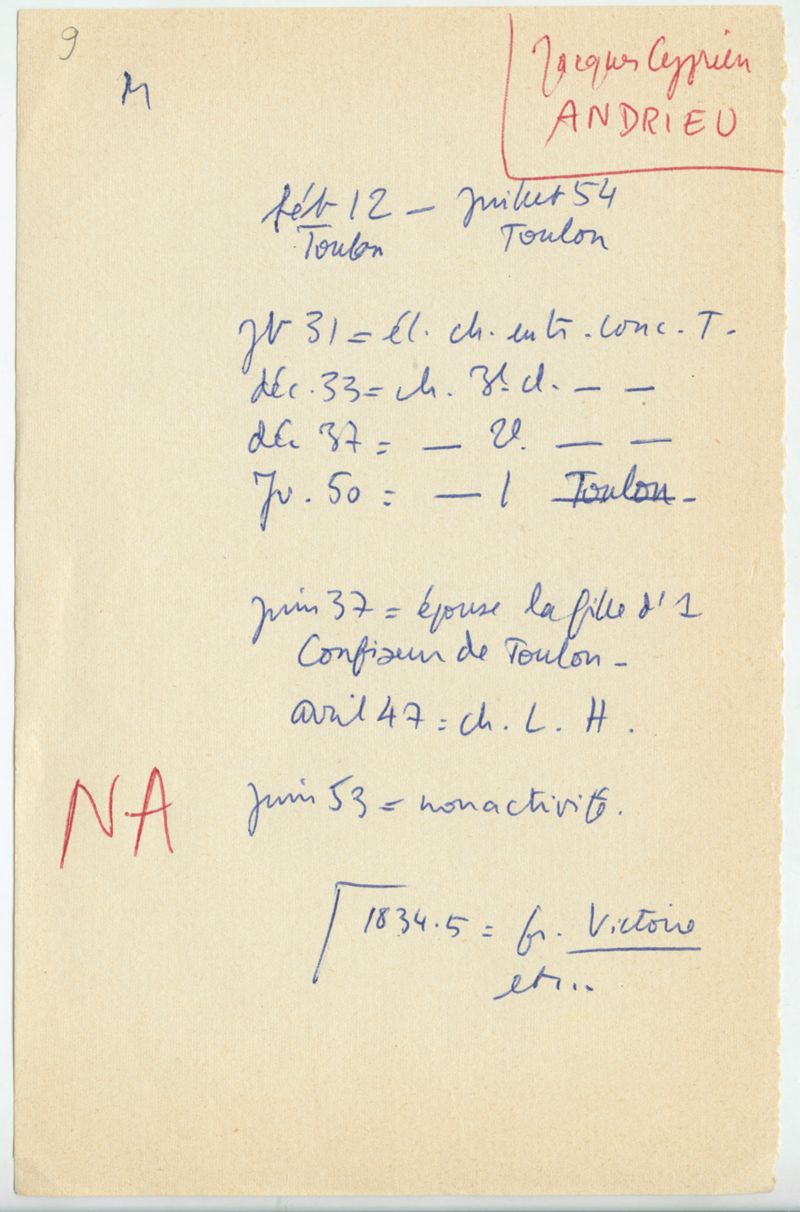 9
M
Jacques Cyprien
ANDRIEU
fév 12 – juillet 54
Toulon Toulon
31 = él. ch. entr. conc. T.
déc. 33 = ch. 3e cl. — —
déc 37 = — 2e. — —
Jv. 50 = — 1 Toulon -
juin 37 = épouse la fille d' 1
Confiseur de Toulon -
avril 47 = ch. L. H.
NA
juin 53 = non activité.
1834.5 = fr. Victoire
etc..